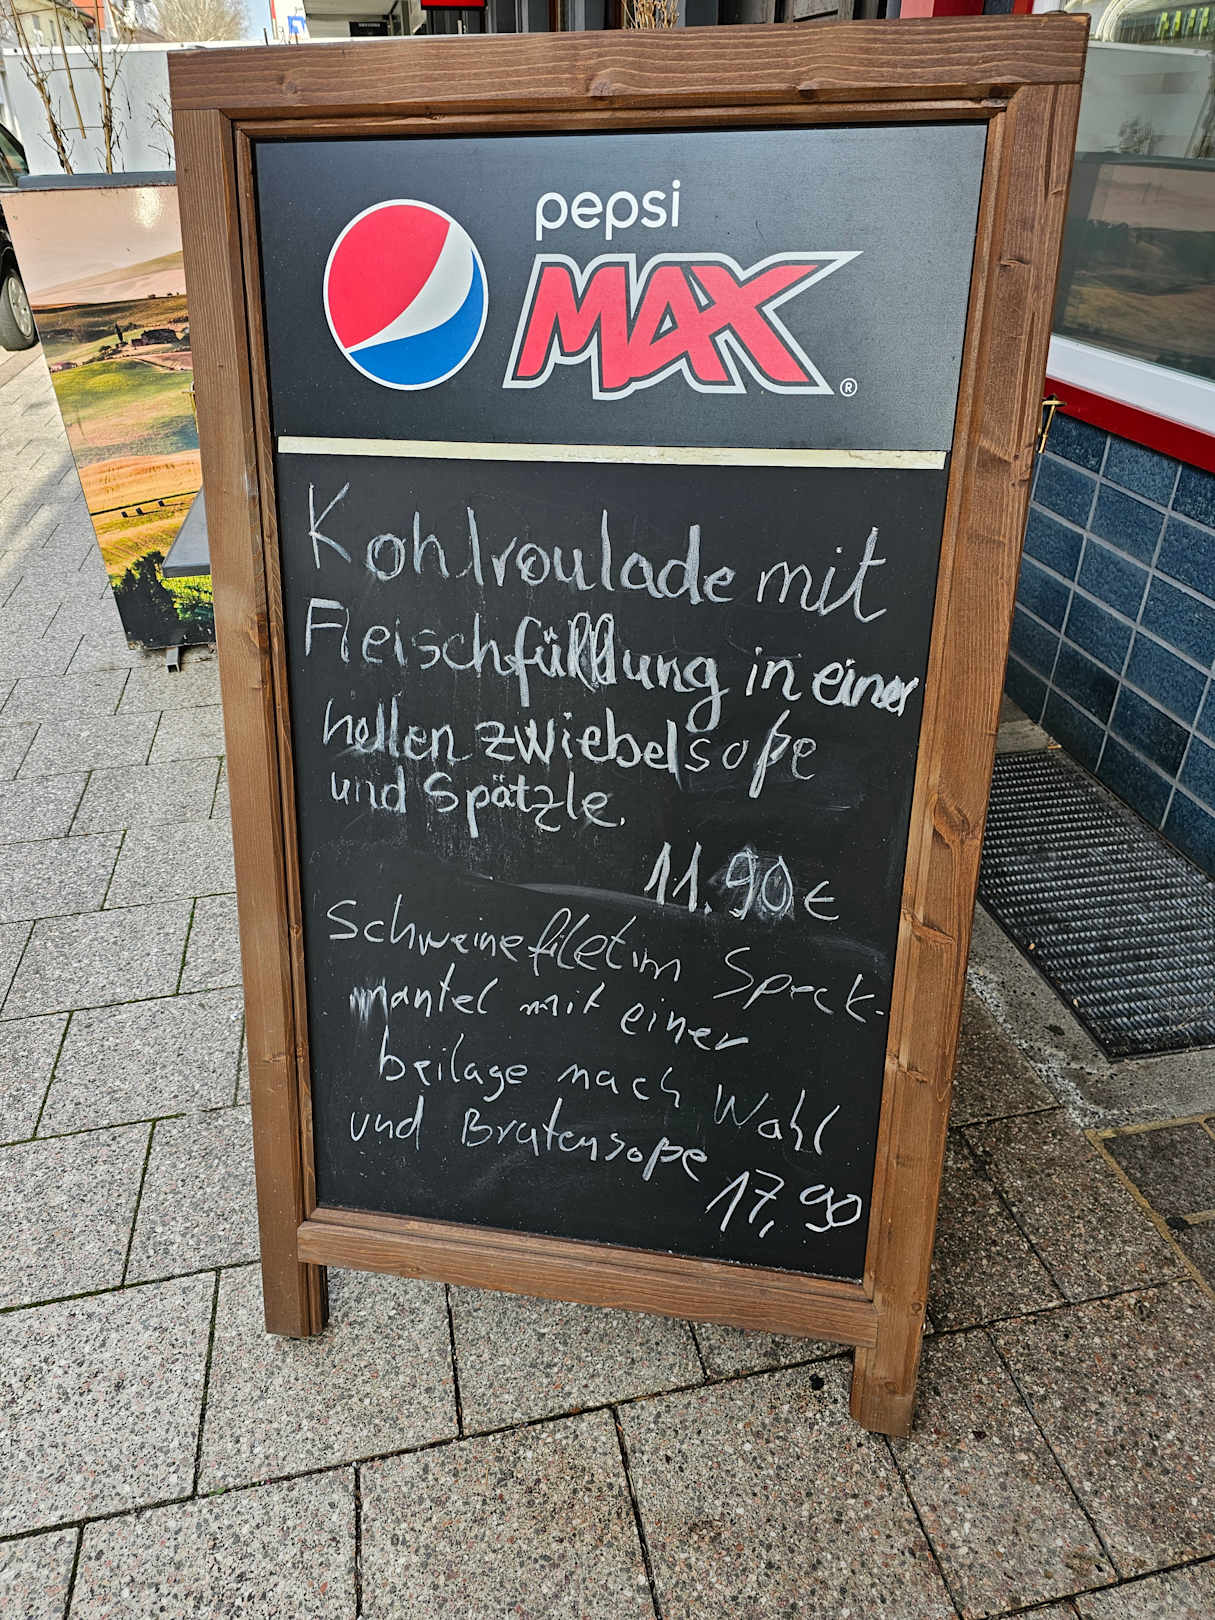 pepsi
MAX®
Kohlroulade mit
Fleischfüllung in einer
hellen zwiebelsoße
und Spätzle.
11.90 €
Schweinefilet im Speck-
mantel mit einer
beilage nach Wahl
und Bratensoße
17,90